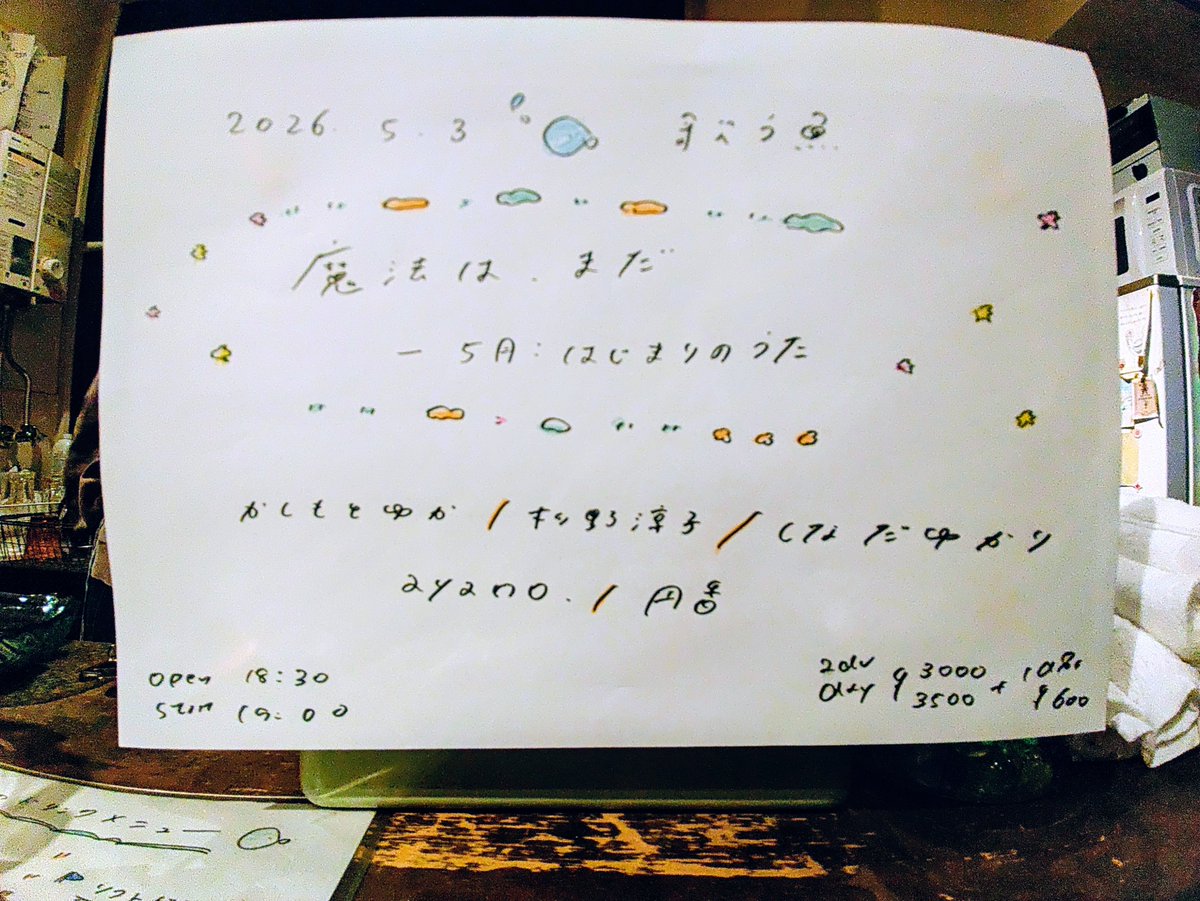 2026. 5. 3
魔法は、まだ
— 5月:はじまりのうた
かしもとゆか / 杉野淳子 / しなだゆかり
/ 円香
open 18:30
start 19:00
adv ¥3000
3500 + ¥600
リンクメニュー
ソフト